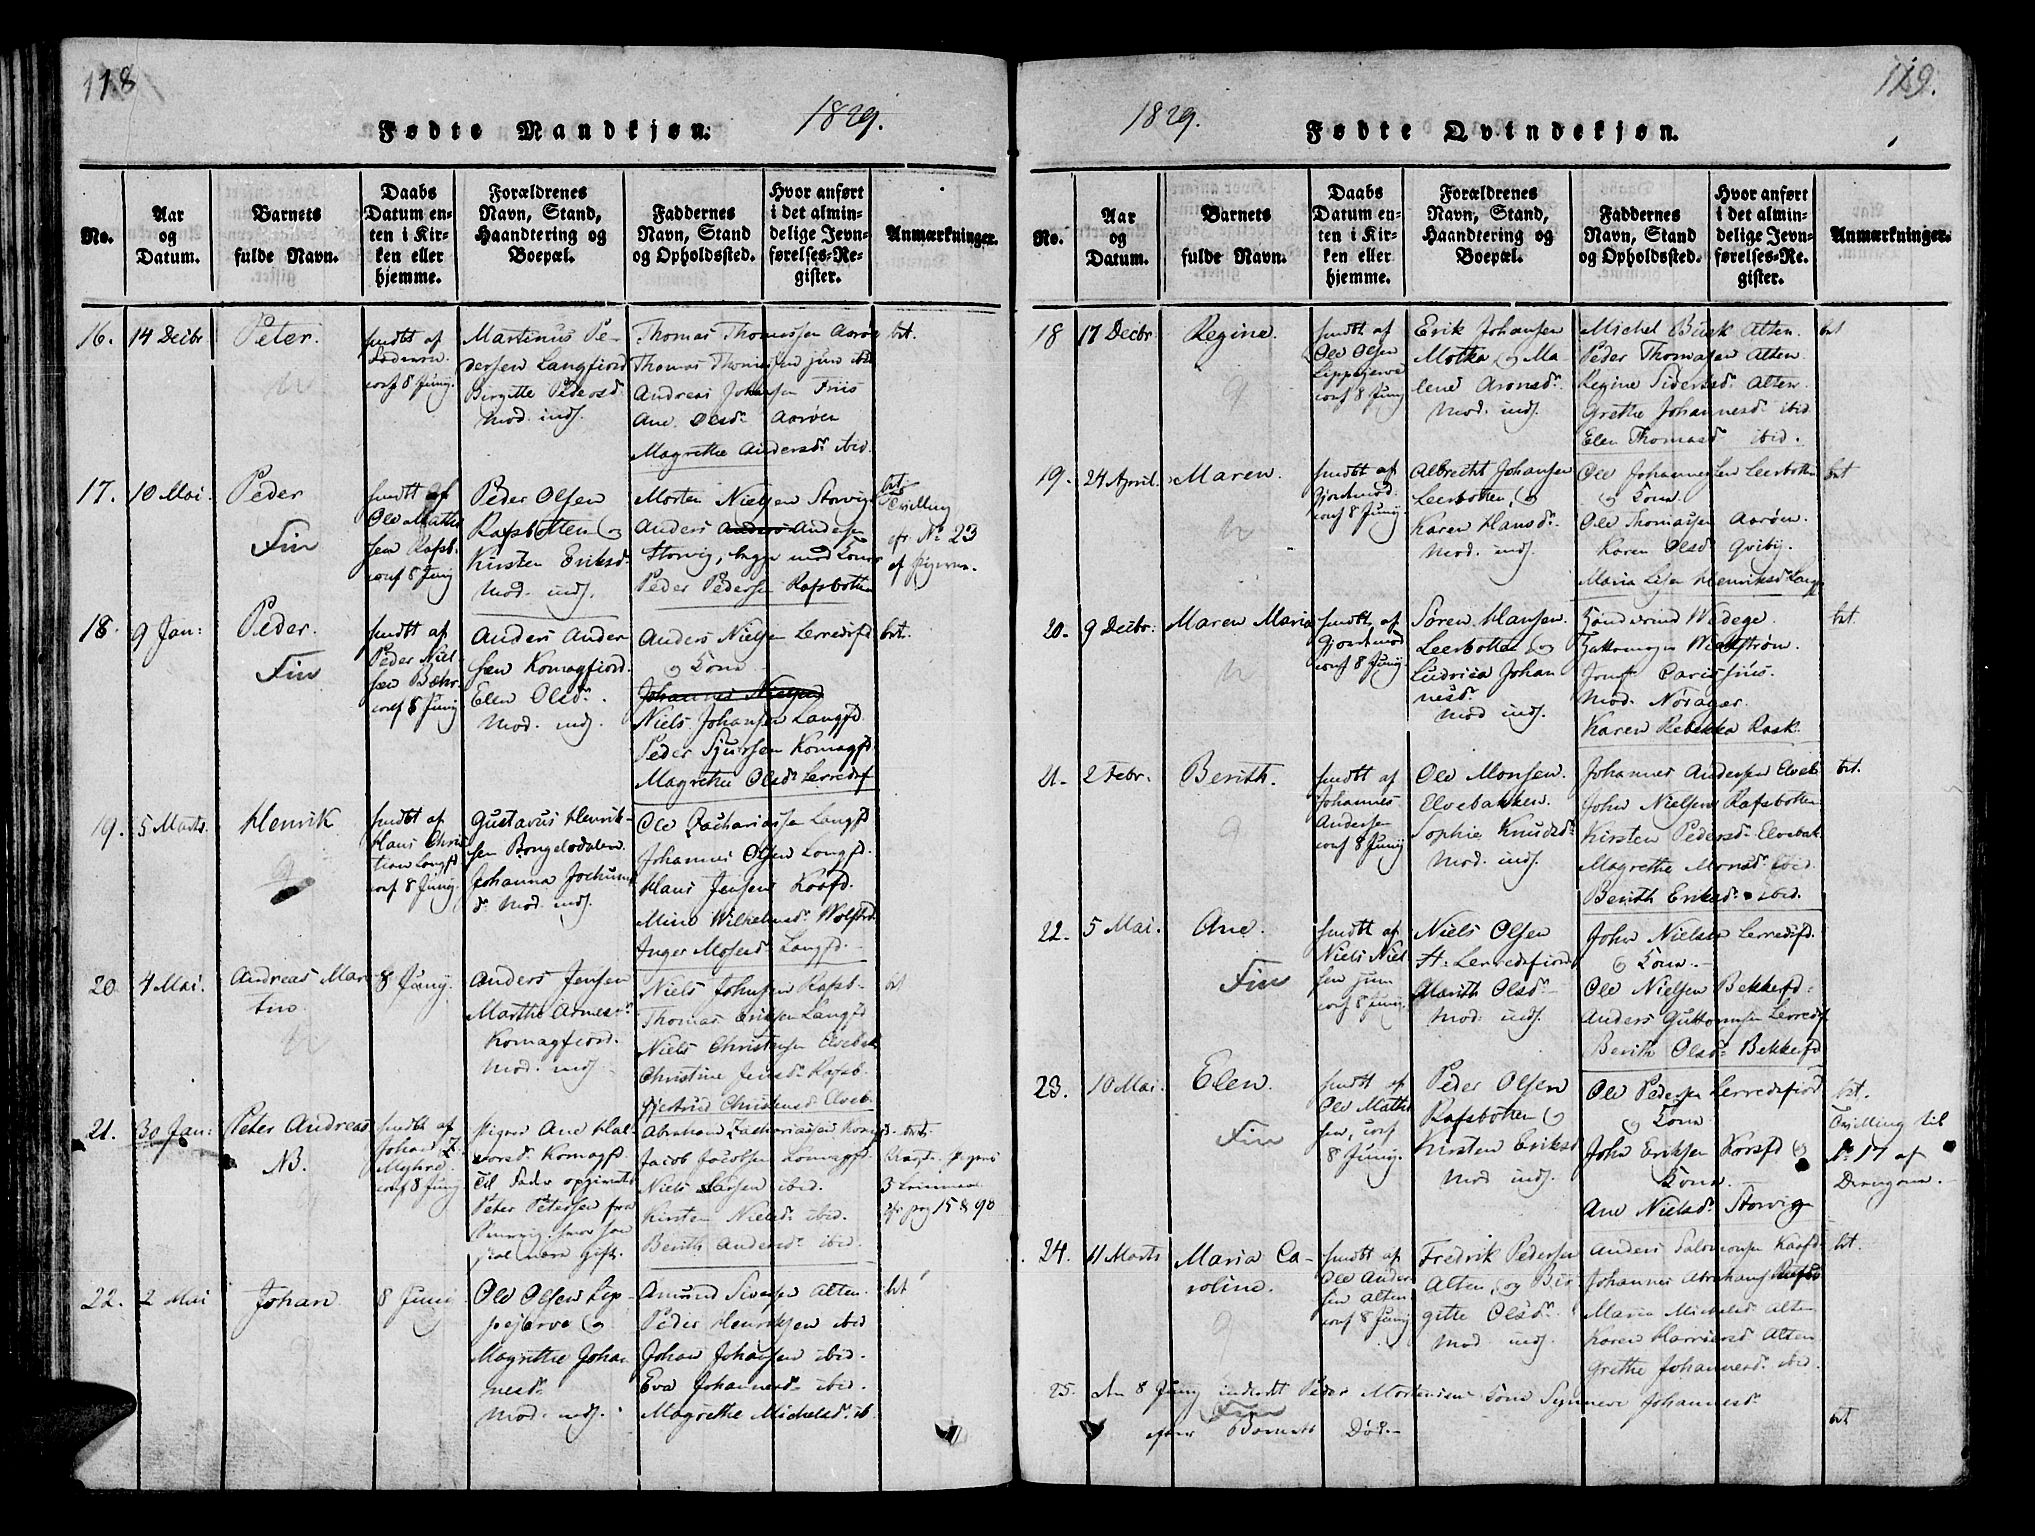 118
1829.
Fødte Mandkjøn.
No.
Aar
og
Datum.
Barnets
fulde Navn.
Daabs
Datum en-
ten i Kir-
ken eller
hjemme.
Forældrenes
Navn, Stand,
Haandtering og
Boepæl.
Faddernes
Navn, Stand
og Opholdssted.
Hvor anført
i det almin-
delige Jevn-
førelses-Re-
gister.
Anmærkninger.
16.
14 Decbr
Peter.
hmdbt af
conf 8 Junij.
Martinus Pe-
dersen Langfiord
Birgitte Pedersd.
Mod. indf.
Thomas Thomassen Aarøe
Thomas Thomassen jun ibid
Andreas Johansen Friis
Ane Olsdr Aarøen
Magrethe Andersdr ibid.
bt.
17.
10 Mai.
Peder
Fin
hmdbt af
Ole Mathi
sen Rafsb.
conf 8 Junij
Peder Olsen
Rafsbotten og
Kirsten Eriksdr
Mod. indf.
Morten Nielsen Storvig
Anders Anders Andersen
Storvig, begge med Koner
Peder Pedersen Rafsbotten
bt.
Tvilling
cfr No 23
af Pigerne.
18.
9 Jan:
Peder.
Fin
hmdbt af
Peder Niel
sen Bæhr.
conf 8 Junij
Anders Ander
sen Komagfiord.
Elen Olsdr.
Mod. indf.
Anders Nielsen Lerredsfd
og Kone
Johannes Nielsen
Niels Johansen Langfd.
Peder Sjursen Komagfd.
Magrethe Olsdr Lerredsf
bt.
19.
5 Marts.
Henrik
hmdbt af
Hans Chris
tian Langfd
conf 8 Junij.
Gustavus Henrik-
sen Bongelsdalen
Johanna Jochums
dr Mod. indf.
Ole Zachariassen Langfd
Johannes Olsen Langfd.
Hans Jensen Kaafd.
Mina Wilhelmsdr Wolfsbd
Inger Mosesd Langfd.
20.
4 Mai.
Andreas Mar
tin.
8 Junij.
Anders Jensen
Marthe Arnesdr
Komagfiord.
Mod. indf.
Niels Johnsen Rafsb-
Thomas Eriksen Langfd
Niels Christensen Elvebak
Christine Jensdr Rafsb.
Giertrud Christensd Elveb.
bt
21.
30 Jan:
Peter Andreas
NB.
hmdbt af
Johan Z.
Myhre.
conf 8 Junij
Pigen Ane Hal-
vorsdr Komagfd.
til Fader opgivet
Peter Petersen fra
skal være gift.
Abraham Zachariassen Komagfd.
Jacob Jacobsen Komagfd.
Niels Larsen ibid.
Kirsten Nielsdr ibid.
Berith Andersdr ibid.
bt.
cfr pag 15 & 90
22.
2 Mai
Johan
8 Junij
Ole Olsen Lip-
pejerve og
Magrethe Johan
nesdr
Mod. indf.
Amund Siversen Alten.
Peder Henriksen ibid
Johan Johansen ibid.
Eva Johannesdr ibid.
Magrethe Michelsdr. ib.
bt
119.
1829.
Fødte Qvindekjøn.
No.
Aar
og
Datum.
Barnets
fulde Navn.
Daabs
Datum en-
ten i Kir-
ken eller
hjemme.
Forældrenes
Navn, Stand,
Haandtering og
Boepæl.
Faddernes
Navn, Stand
og Opholdssted.
Hvor anført
i det almin-
delige Jevn-
førelses-Re-
gister.
Anmærkninger.
18
17 Decbr
Regine.
hmdbt af
Ole Olsen
Lippejerve
conf 8 Junij
Erik Johansen
Motka og Ma
lene Aronsdr.
Mod. indf.
Michel Busk Alten.
Peder Thomasen Alten.
Regine Sidersdr Alten.
Grethe Johannesdr ibid
Elen Thomasd ibid.
bt
19.
24 April.
Maren.
hmdbt af
Gjordmod.
conf 8 Junij.
Albrecht Johansen
Leerbotten, og
Karen Hansdr.
Mod. indf.
Ole Johannesen Leerbotten
og Kone.
Ole Thomassen Aarøen.
Karen Olsdr Qviby.
Maria Lisa Henriksd Langf
bt
20.
9 Decbr.
Maren Maria
hmdbt af
Gjordmod
conf 8 Junij
Søren Hansen.
Leerbotten og
Ludvica Johan
nesdr
Mod indf.
Handsmd Wedege.
Guttormsen Wadstrøm.
Jomf Carissius.
Mod. Nørager.
Karen Rebekka Rask.
bt.
21.
2 Febr.
Berith.
hmdbt af
Johannes
Andersen
conf 8 Junij
Ole Monsen.
Elvebakken.
Sophie Knudsdr
Mod. indf.
Johannes Andersen Elveb
John Nielsen Rafsbotten
Kirsten Pedersdr Elvebak.
Magrethe Monsdr ibid.
Berith Eriksdr ibid.
bt.
22.
5 Mai.
Ane.
Fin
hmdbt af
Niels Niel
sen jun
conf 8 Junij.
Niels Olsen
St. Lerredsfiord
Marith Olsdr
Mod. indf.
John Nielsen Lerredsfd.
og Kone.
Ole Nielsen Bekkerfd:
Anders Guttormsen Lerredsf.
Berith Olsdr Bekkerfd
23.
10 Mai.
Elen.
Fin
hmdbt af
Ole Mathi
sen, conf
8 Junij.
Peder Olsen
Rafsbotten og
Kirsten Eriksd
Mod indf.
Ole Pedersen Lerredsfiord
og Kone
John Eriksen Korsfd og
Kone.
Ane Nielsdr Storvig
bt.
Tvilling til
No 17 af
Drengene.
24.
11 Marts
Maria Ca-
roline.
hmdbt af
Ole Ander
sen Alten
conf 8 Junij
Fredrik Pedersen
Alten, og Bir
gitte Olsdr
Mod. indf.
Anders Salomonsen Kaafd.
Johannes Abrahams Rafsb
Maria Michelsd Alten
Karen Harriersd Alten
Grethe Johannesdr ibid.
bt.
25.
den 8 Junij indledt Peder Mortensens Kone Synneve Johannesdr
Fin
efter Barnets Død.
bt